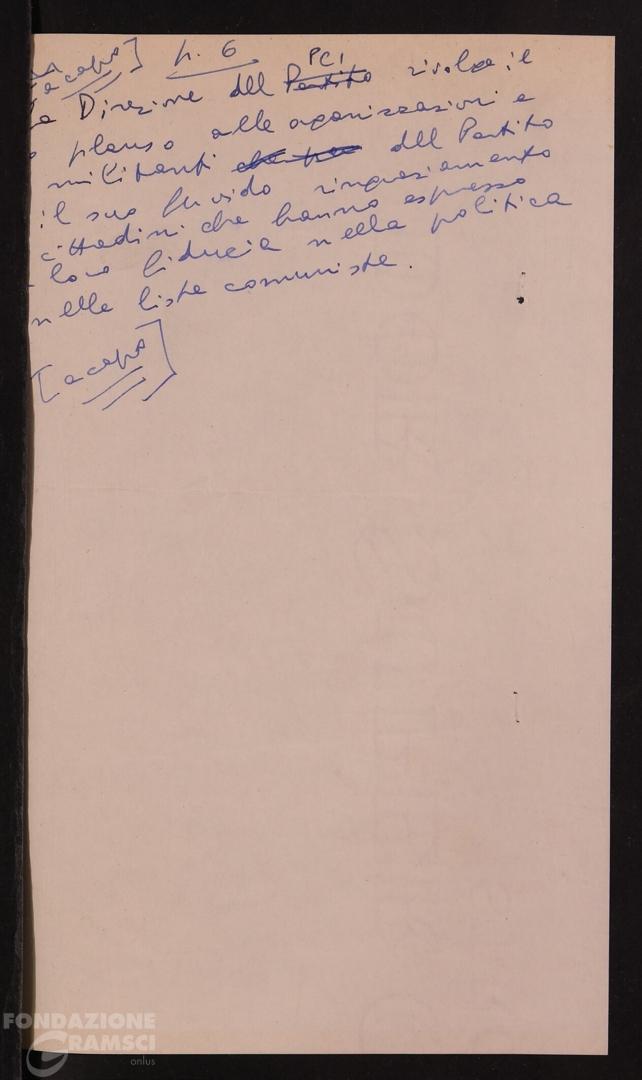 [a capo] p. 6
PCI
Direzione dell Partito rivolge il
plauso alle organizzazioni e
militanti dell Partito
il suo fervido ringraziamento
cittadini che hanno espresso
loro fiducia nella politica
nelle liste comuniste.
[a capo]
FONDAZIONE
GRAMSCI
onlus